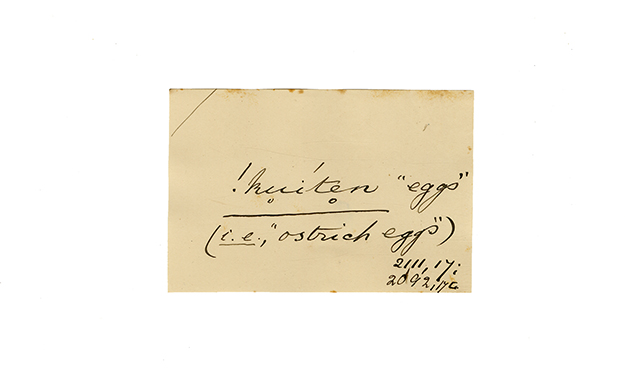 !kuíten "eggs"
(i.e., "ostrich eggs")
2111, 17;
2092, 17c